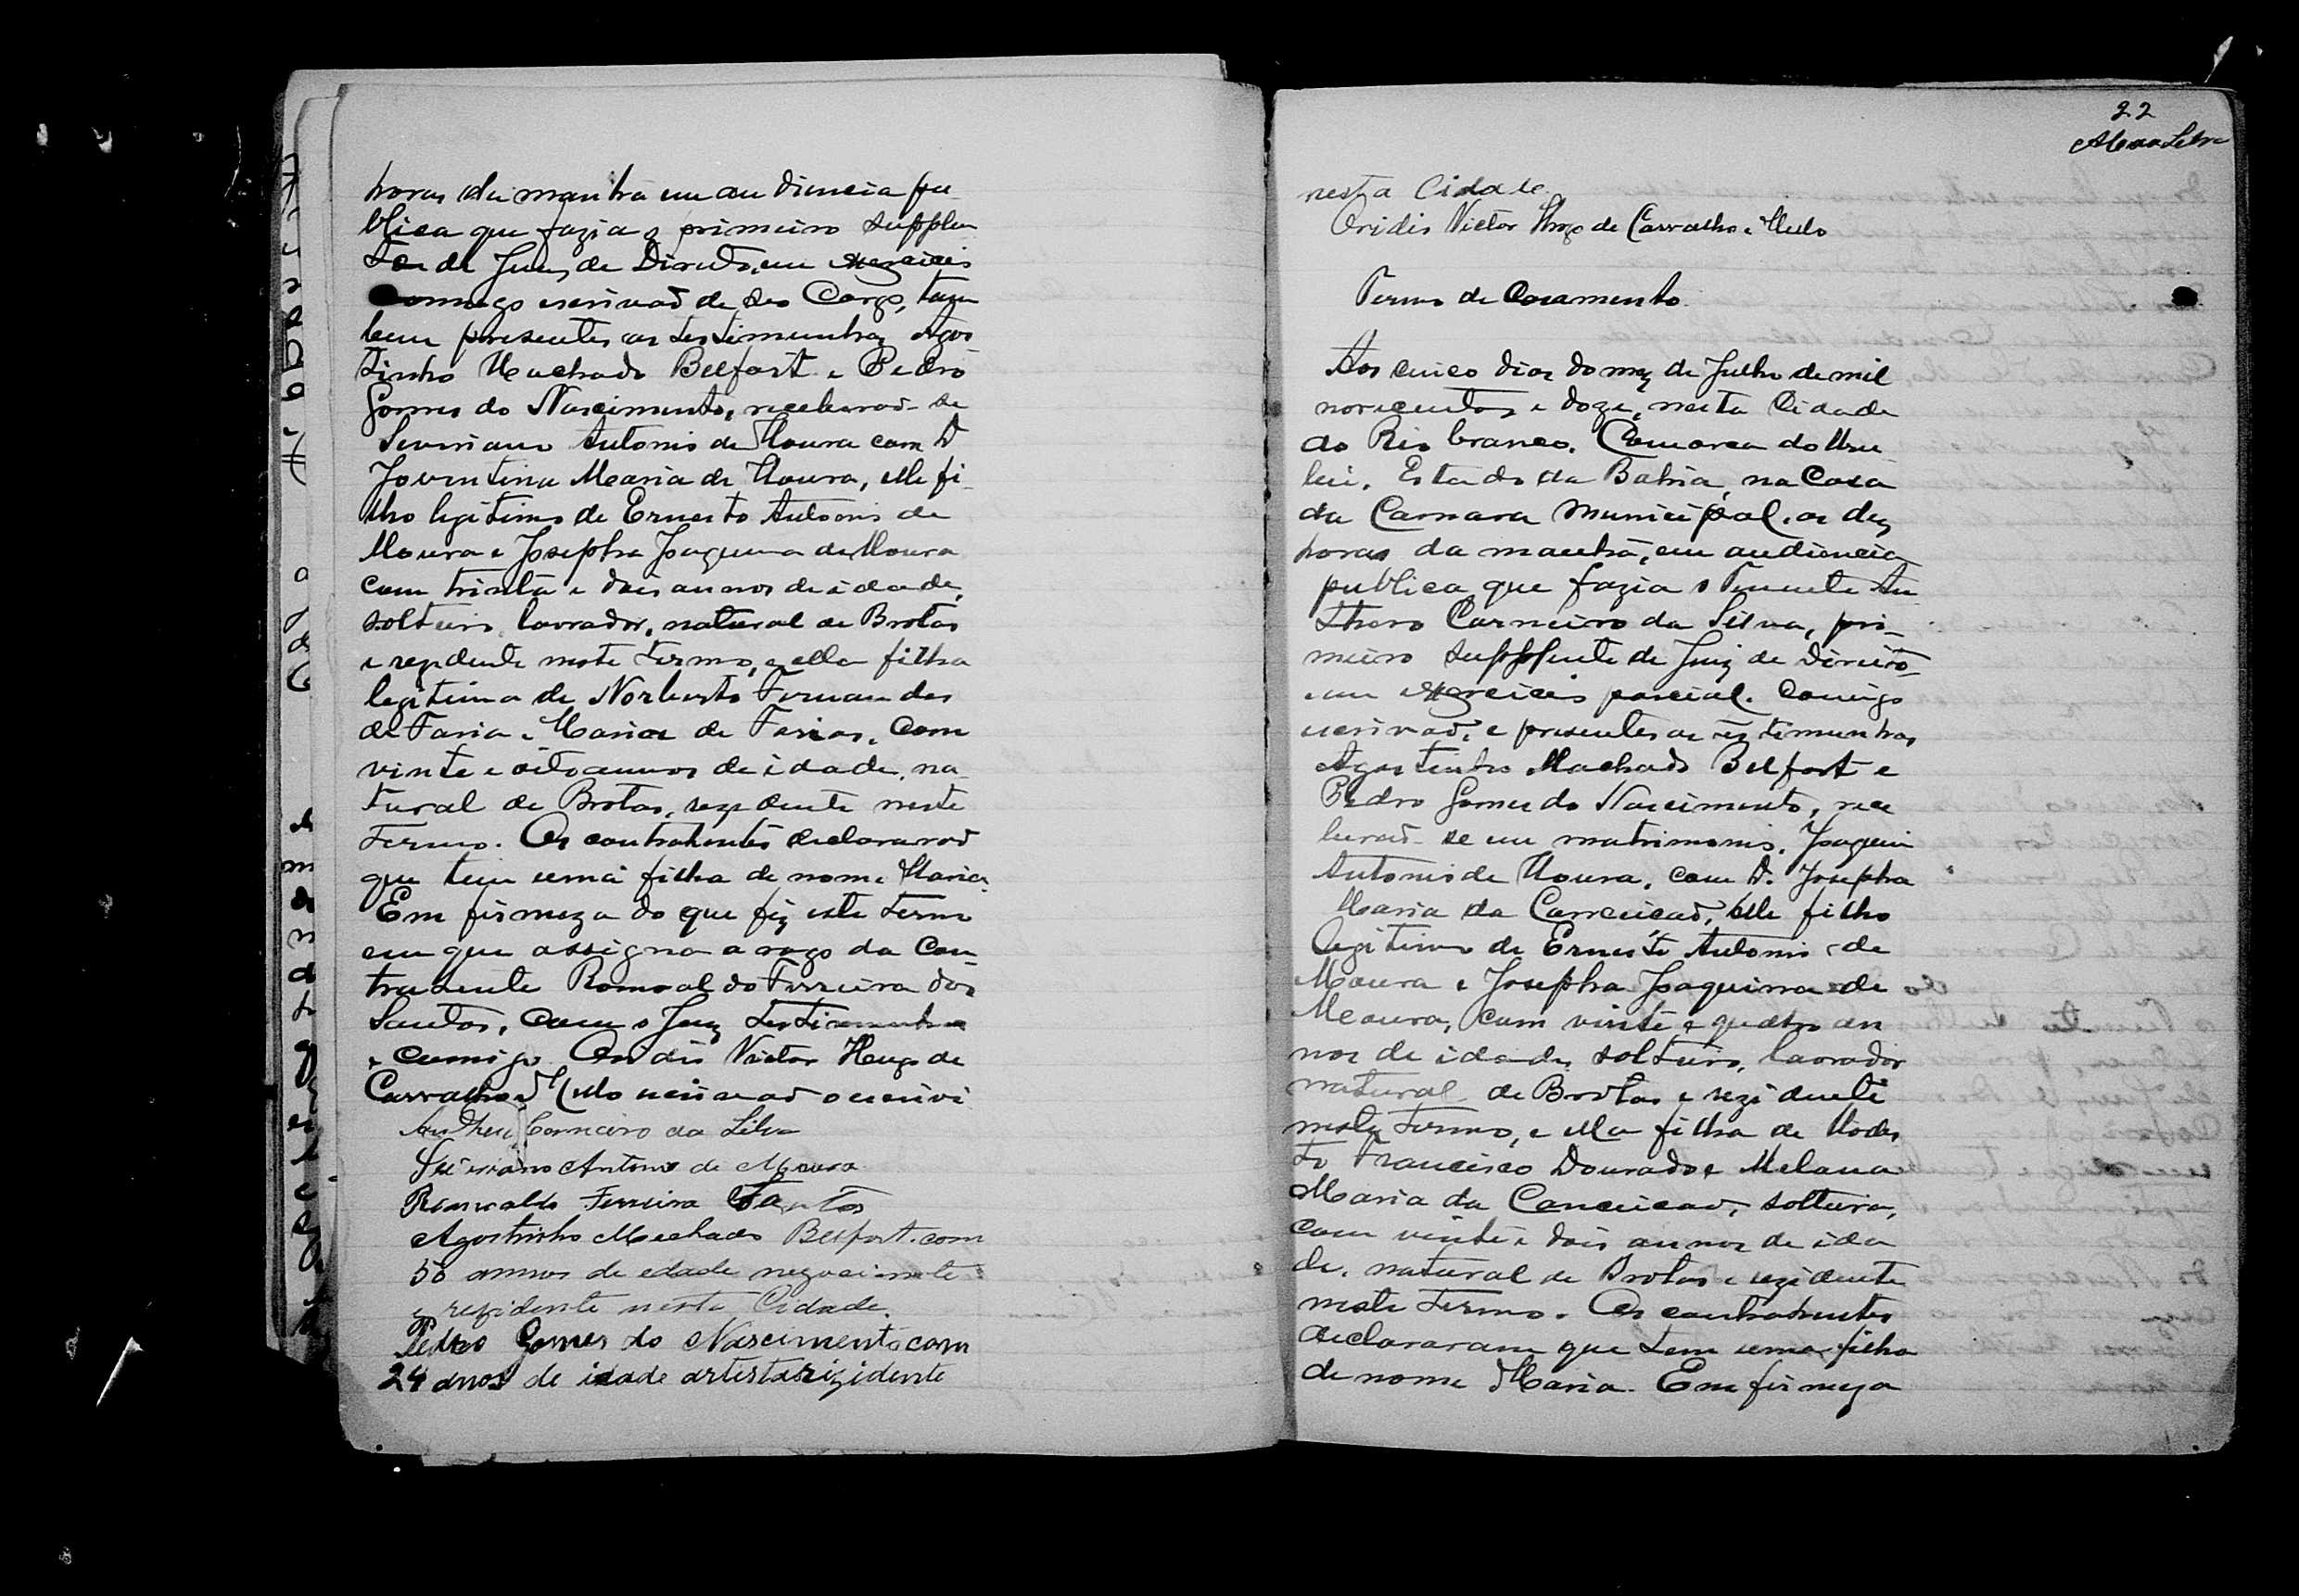 horas da manhã em audiencia pu-
blica que fazia o primeiro supplen
te de Juiz de Direito, em exzercicio
commigo escrivaõ de seo Cargo, tam
bem presentes as testimunhas Agos
tinho Machado Belfort e Pedro
Gomes do Nascimento, receberaõ-se
Siviriano Antonio de Moura com D
Joventina Maria de Moura, elle fi-
lho legitimo de Ernesto Antonio de
Moura e Josepha Joaquina de Moura
com trinta e dois annos de idade,
solteiro, lavrador, natural de Brotas
e rezidente neste termo, e ella filha
legitima de Norberto Fernandes
de Faria e Maria de Farias, com
vinte e oito annos de idade, na-
tural de Brotas, rezidente neste
termo. Os contrahentes declararaõ
que tem uma filha de nome Maria.
Em firmeza do que fiz este termo
em que assigna a rogo da con-
trahente Romoaldo Ferreira dos
Santos, com o Juiz testimunhas
e comigo Oridis Victor Hugo de
Carvalho e Mello escrivaõ o escrivi
Anthero Carneiro da Silva
Siviriano Antonio de Moura
Romualdo Ferreira Santos
Agostinho Machado Belfort. com
50 annos de edade negociante
e rezidente nesta Cidade.
Pedro Gomes do Nascimento com
24 anos de idade artista rizidente
22
nesta Cidade
Oridis Victor Hugo de Carvalho e Mello
Termo de Casamento.
Aos cinco dias do mez de Julho de mil
novecentos e doze, nesta Cidade
do Rio branco, Comarca do Uru
bu, Estado da Bahia, na Casa
da Camara Municipal, as dez
horas da manhã, em audiencia
publica que fazia o Tenente An
thero Carneiro da Silva, pri-
meiro Supplente de Juiz de Direito
em exzercicio parcial. Comigo
escrivaõ, e presentes as testimunhas
Agostinho Machado Belfort e
Pedro Gomes do Nascimento, rece
beraõ-se em matrimonio, Joaquim
Antonio de Moura, com D. Josepha
Maria da Conceicaõ, elle filho
legitimo de Ernesto Antonio de
Moura e Josepha Joaquina de
Moura, com vinte e quatro an
nos de idade, solteiro, lavrador
natural de Brotas e rezidente
neste termo, e ella filha de Modes
to Francisco Dourado e Melana
Maria da Conceicaõ, solteira,
com vinte e dois annos de ida
de, natural de Brotas e rezidente
neste termo. Os contrahentes
declararam que tem uma filha
de nome Maria. Em firmeza